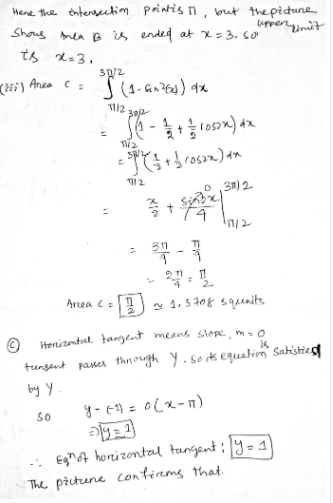 Here the intersection point is π, but the picture
shows area B is ended at x = 3. so upper limit
is x = 3.
(iii) Area C = ∫_{π/2}^{3π/2} (1 - sin²(x)) dx
= ∫_{π/2}^{3π/2} (1 - 1/2 + 1/2 cos2x) dx
= ∫_{π/2}^{3π/2} (1/2 + 1/2 cos2x) dx
= x/2 + sin2x/4 |_{π/2}^{3π/2}
= 3π/4 - π/4
= 2π/4 = π/2
Area C = π/2 ≈ 1.5708 sq units
(c) Horizontal tangent means slope, m = 0
tangent passes through Y. so its equation is satisfied
by Y.
so y - (-1) = 0(x - π)
⇒ y = 1
∴ Eqn of horizontal tangent: y = 1
The picture confirms that.